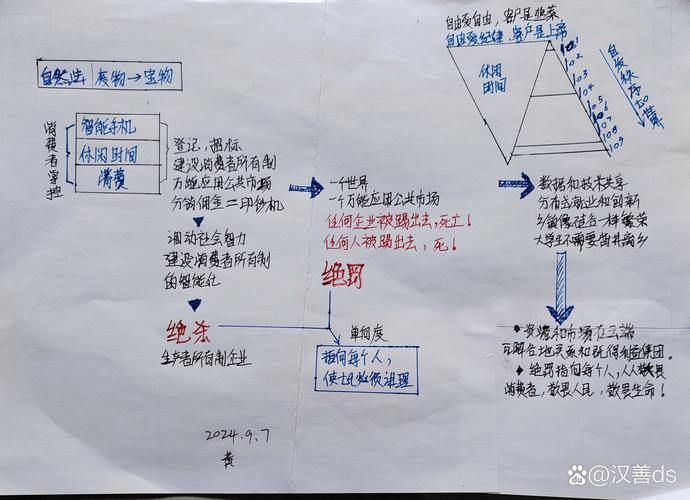 自由致自由，客户是韭菜
自由致纪律，客户是上帝
休闲
时间
101
102
103
104
105
106
107
108
109
自发秩序动
自然造
废物→宝物
消费者掌控
智能手机
休闲时间
消费
登记，招标
建设消费者所有制
万能应用公共市场
分销佣金=印钞机
一个世界
一个万能应用公共市场
任何企业被踢出去，死亡！
任何人被踢出去，死！
绝罚
数据和技术共享
分布式就业和创新
乡镇像硅谷一样繁荣
大学生不需要背井离乡
调动社会智力
建设消费者所有制
的智能化
绝杀
生产者所有制企业
单向度
指向每个人，
资源和市场在云端
瓦解各地关系和既得利益集团。
绝罚指向每个人，人人敬畏
消费者，敬畏人民，敬畏生命！
2024.9.7
黄
汉善ds